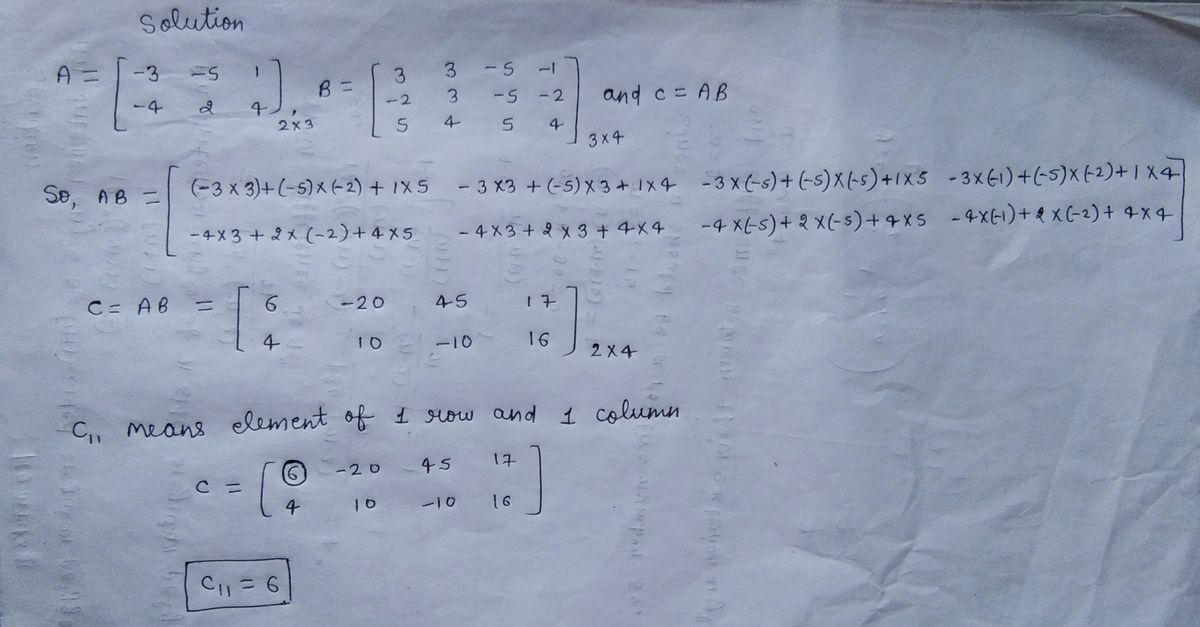 Solution
A = [ -3 -5 1
-4 2 4 ], 2×3 B = [ 3 3 -5 -1
-2 3 -5 -2
5 4 5 4 ] 3×4 and c = AB
So, AB = [ (-3 × 3)+(-5)×(-2) + 1×5 -3×3 +(-5)×3+ 1×4 -3×(-5)+(-5)×(-5)+1×5 -3×(-1)+(-5)×(-2)+1×4
-4×3 + 2×(-2)+4×5 -4×3+2×3+4×4 -4×(-5)+2×(-5)+4×5 -4×(-1)+2×(-2)+4×4 ]
C = AB = [ 6 -20 45 17
4 10 -10 16 ] 2×4
C11 means element of 1 row and 1 column
C = [ 6 -20 45 17
4 10 -10 16 ]
C11 = 6